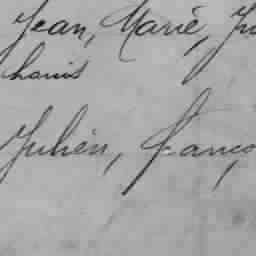 Jean, Marie, Ju
Louis
Julien, Franço